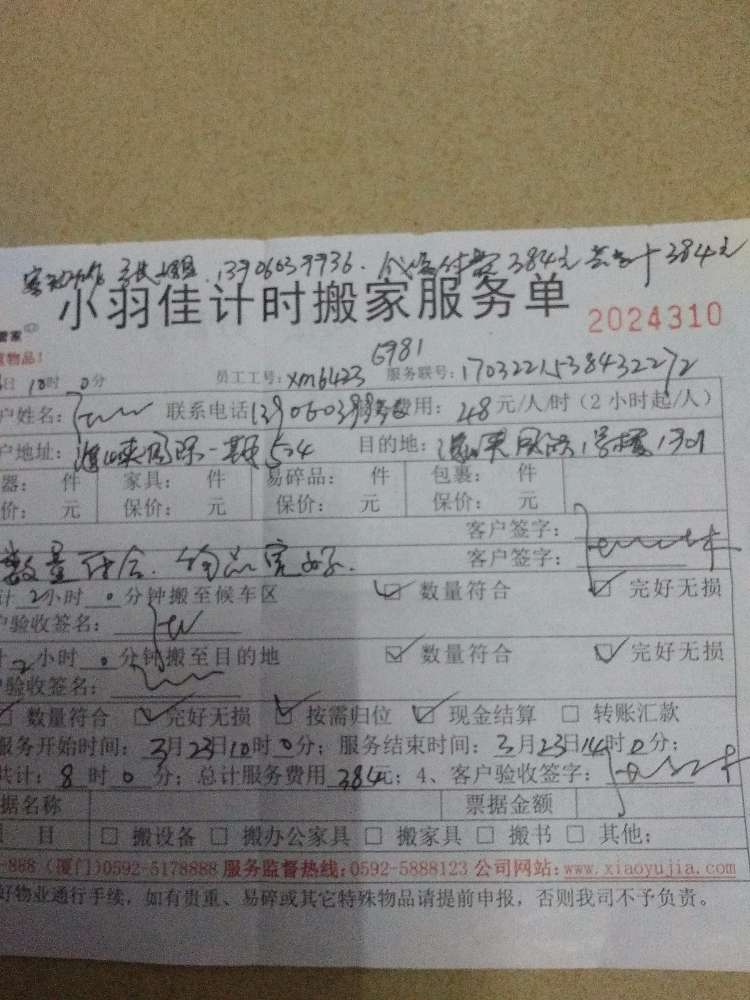 13906039936. 代客付费384元 共计384元
小羽佳计时搬家服务单 2024310
管家
物品!
日 10时 0分 员工工号: xm6423 6981 服务联号: 1703221538432272
户姓名: 联系电话 费用: 48元/人/时(2小时起/人)
户地址: 一期504 目的地: 1号楼1301
器: 件 家具: 件 易碎品: 件 包裹: 件
价: 元 保价: 元 保价: 元 保价: 元
客户签字:
数量符合. 物品完好. 客户签字:
计 2小时 0分钟搬至候车区 ☑ 数量符合 ☑ 完好无损
户验收签名:
计 2小时 0分钟搬至目的地 ☑ 数量符合 ☑ 完好无损
户验收签名:
☑ 数量符合 ☑ 完好无损 ☑ 按需归位 ☑ 现金结算 □ 转账汇款
服务开始时间: 3月23日10时0分; 服务结束时间: 3月23日14时0分;
共计: 8时0分; 总计服务费用 384元; 4、客户验收签字:
据名称 票据金额
目 □ 搬设备 □ 搬办公家具 □ 搬家具 □ 搬书 □ 其他:
-888 (厦门)0592-5178888 服务监督热线:0592-5888123 公司网站:www.xiaoyujia.com
好物业通行手续, 如有贵重、易碎或其它特殊物品请提前申报, 否则我司不予负责。